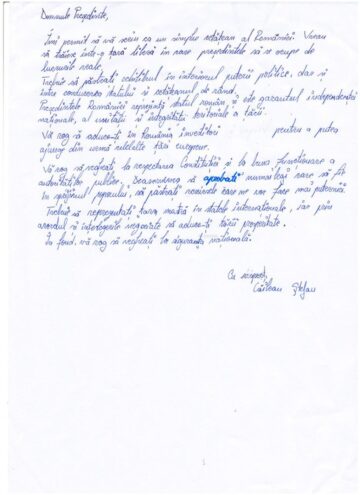 Domnule Președinte,
Îmi permit să vă scriu ca un simplu cetățean al României. Vreau
să trăiesc într-o țară liberă în care președintele să se ocupe de
lucrurile reale.
Trebuie să păstrați echilibrul în interiorul puterii politice, dar și
între conducerea statului și cetățeanul de rând.
Președintele României reprezintă statul român și este garantul independenței
naționale, al unității și integrității teritoriale a țării.
Vă rog să aduceți în România investitori pentru a putea
ajunge din urmă celelalte țări europene.
Vă rog să vegheați la respectarea Constituției și la buna funcționare a
autorităților publice. Deasemenea să aprobați numai legi care să fie
în sprijinul poporului, să păstrați comorile care ne vor face mai puternici.
Trebuie să reprezentați țara noastră în statele internaționale, iar prin
acorduri și înțelegeri negociate să aduceți țării prosperitate.
În final, vă rog să vegheați la siguranța națională.
Cu respect,
Ștefan